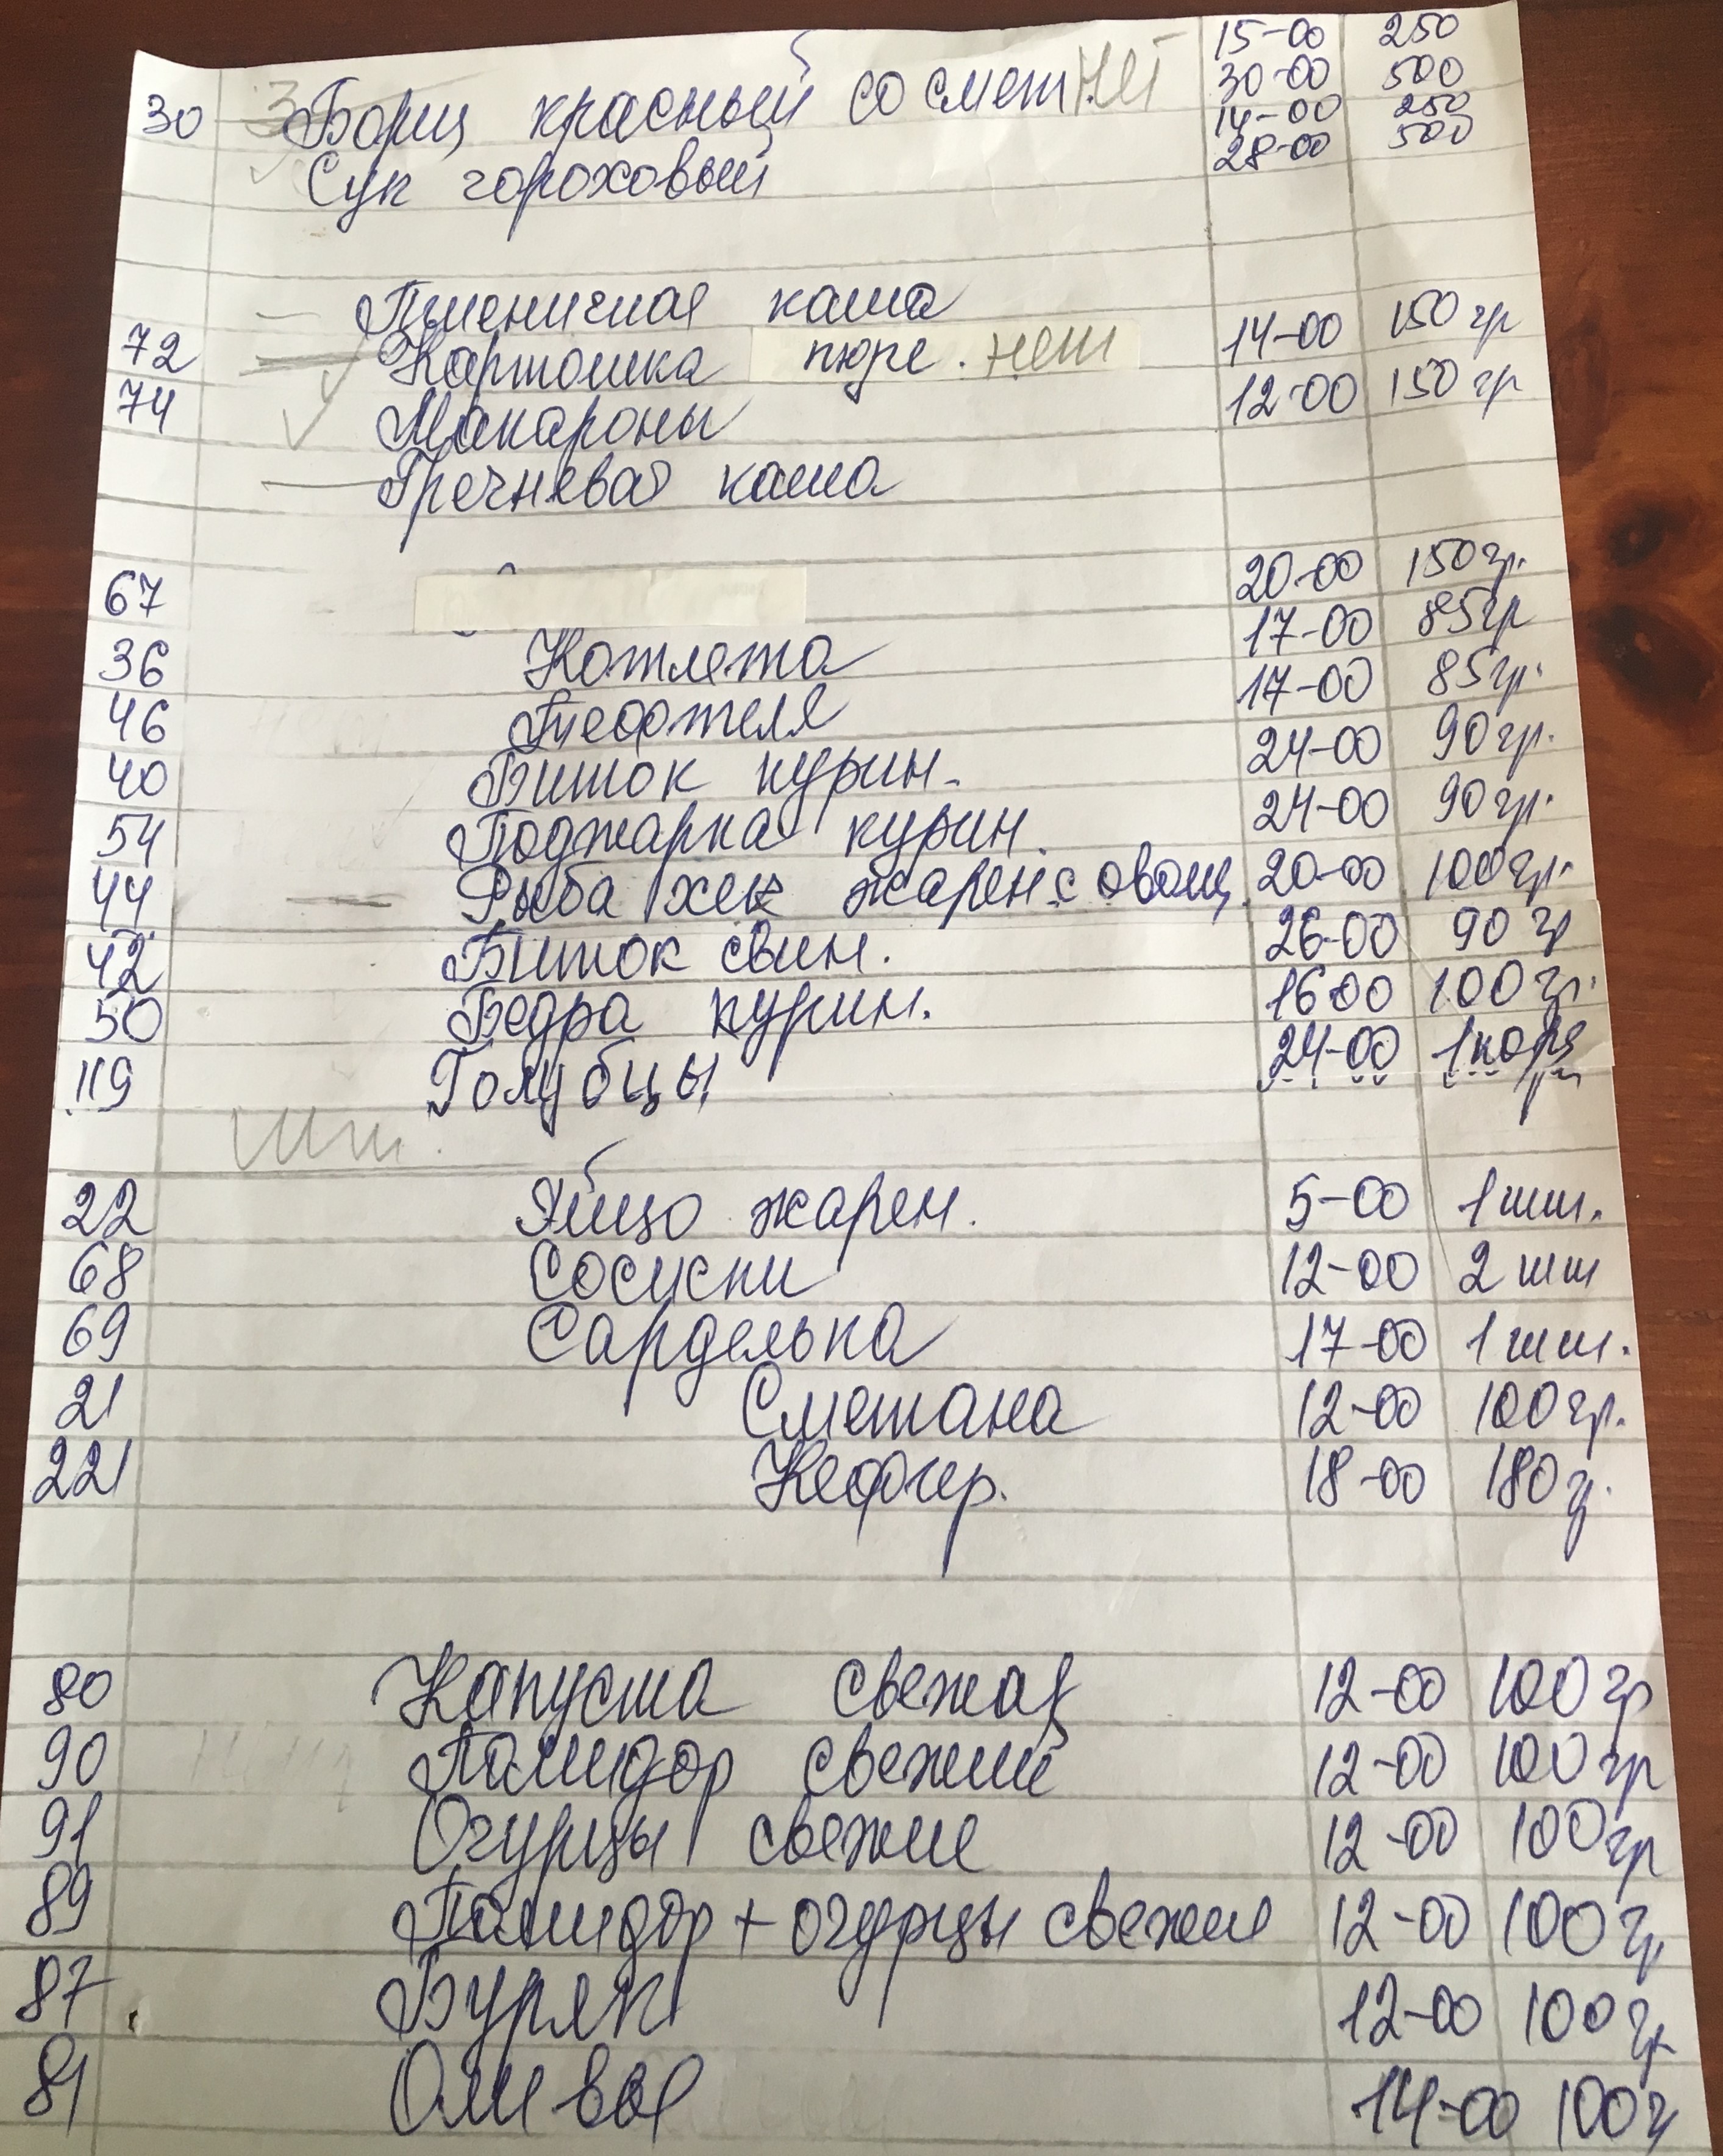 15-00 250
30 Борщ красный со смет. нет 30-00 500
14-00 250
Суп гороховый 28-00 500
Пшеничная каша
72 Картошка пюре. нет 14-00 150 гр
74 Макароны 12-00 150 гр
Гречневая каша
67 20-00 150 гр.
36 Котлета 17-00 85 гр
46 Тефтеля 17-00 85 гр.
40 Биток курин. 24-00 90 гр.
54 Поджарка курин. 24-00 90 гр.
44 Рыба хек жарен с овощ. 20-00 100 гр.
42 Биток свин. 26-00 90 гр
50 Бедра курин. 16-00 100 гр.
119 Голубцы 24-00 1 порц
шт.
22 Яйцо жарен. 5-00 1 шт.
68 Сосиски 12-00 2 шт
69 Сарделька 17-00 1 шт.
21 Сметана 12-00 100 гр.
221 Кефир. 18-00 180 г.
80 Капуста свежая 12-00 100 гр
90 Памидор свежий 12-00 100 гр
91 Огурцы свежие 12-00 100 гр
89 Памидор + огурцы свежие 12-00 100 г.
87 Буряк 12-00 100 г.
81 Оливье 14-00 100 г